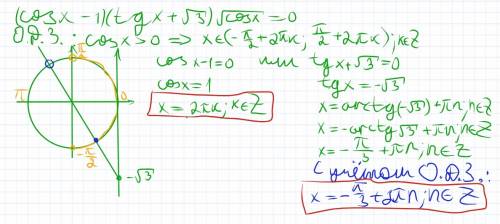 (cosx - 1)(tgx + √3)√cosx = 0
О.Д.З.: cosx > 0 ⇒ x∈(-π/2 + 2πк; π/2 + 2πк); к∈Z
cosx - 1 = 0 или tgx + √3 = 0
cosx = 1
x = 2πк; к∈Z
tgx = -√3
x = arctg(-√3) + πn; n∈Z
x = -arctg√3 + πn; n∈Z
x = -π/3 + πn; n∈Z
С учётом О.Д.З.:
x = -π/3 + 2πn; n∈Z
π/2
π
0
-π/2
-√3